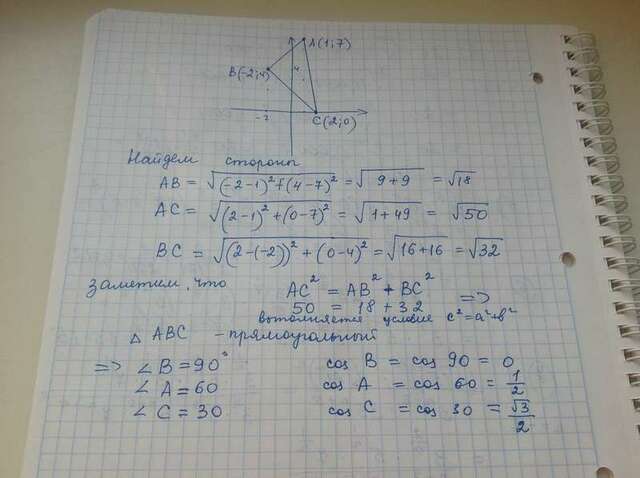 A(1;7)
B(-2;4)
4
-2
C(2;0)
Найдем стороны
AB = √((-2-1)²+(4-7)²) = √(9+9) = √18
AC = √((2-1)²+(0-7)²) = √(1+49) = √50
BC = √((2-(-2))²+(0-4)²) = √(16+16) = √32
Заметим, что AC² = AB² + BC²
50 = 18 + 32 =>
выполняется условие c²=a²+b²
△ ABC - прямоугольный
=> ∠B = 90° cos B = cos 90 = 0
∠A = 60 cos A = cos 60 = 1/2
∠C = 30 cos C = cos 30 = √3/2